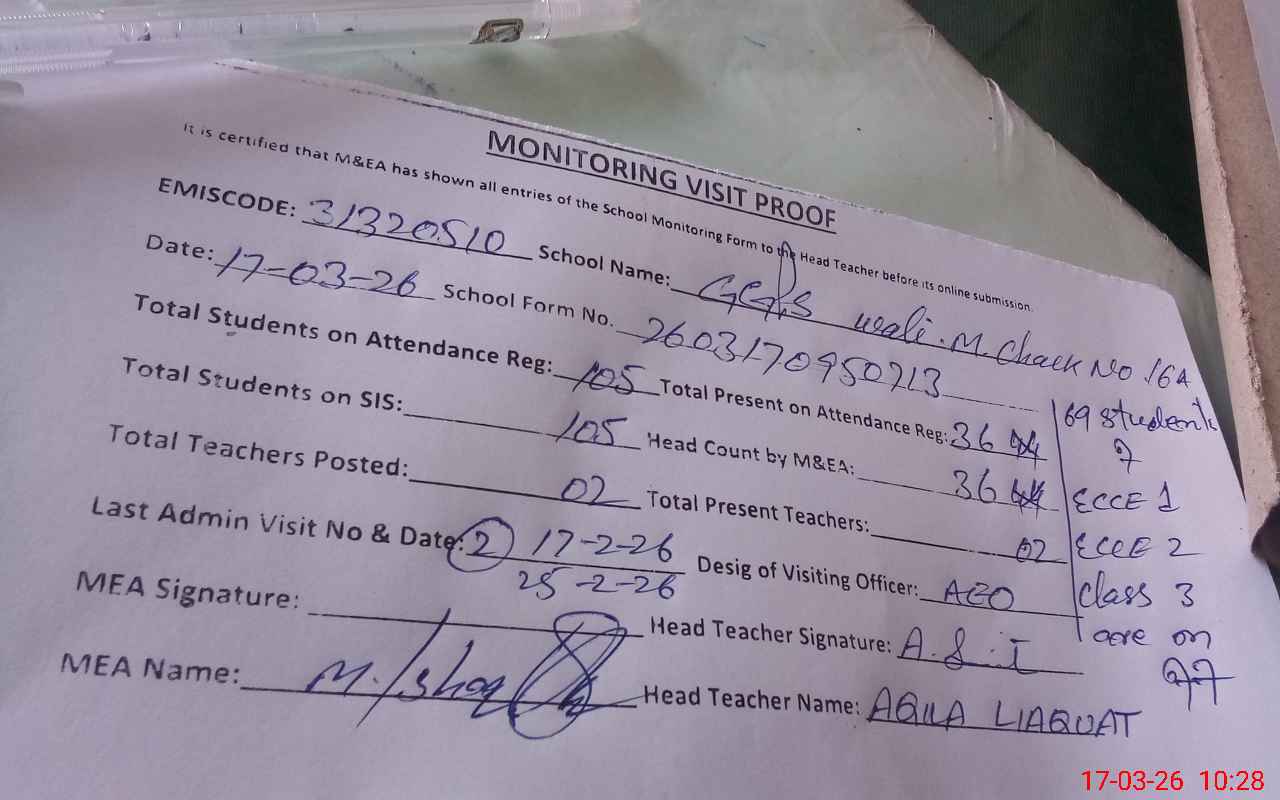 MONITORING VISIT PROOF
It is certified that M&EA has shown all entries of the School Monitoring Form to the Head Teacher before its online submission.
EMISCODE: 31320510 School Name: GGPS wali. M. Chack No 16A
Date: 17-03-26 School Form No. 2603170950713
Total Students on Attendance Reg: 105 Total Present on Attendance Reg: 36
Total Students on SIS: 105 Head Count by M&EA: 36
Total Teachers Posted: 02 Total Present Teachers: 02
Last Admin Visit No & Date: 2 17-2-26 Desig of Visiting Officer: AEO
25-2-26
MEA Signature: Head Teacher Signature: A.S.I
MEA Name: M. Ishaq Head Teacher Name: AQILA LIAQUAT
69 students
of
ECCE 1
ECCE 2
class 3
are on
17-03-26 10:28